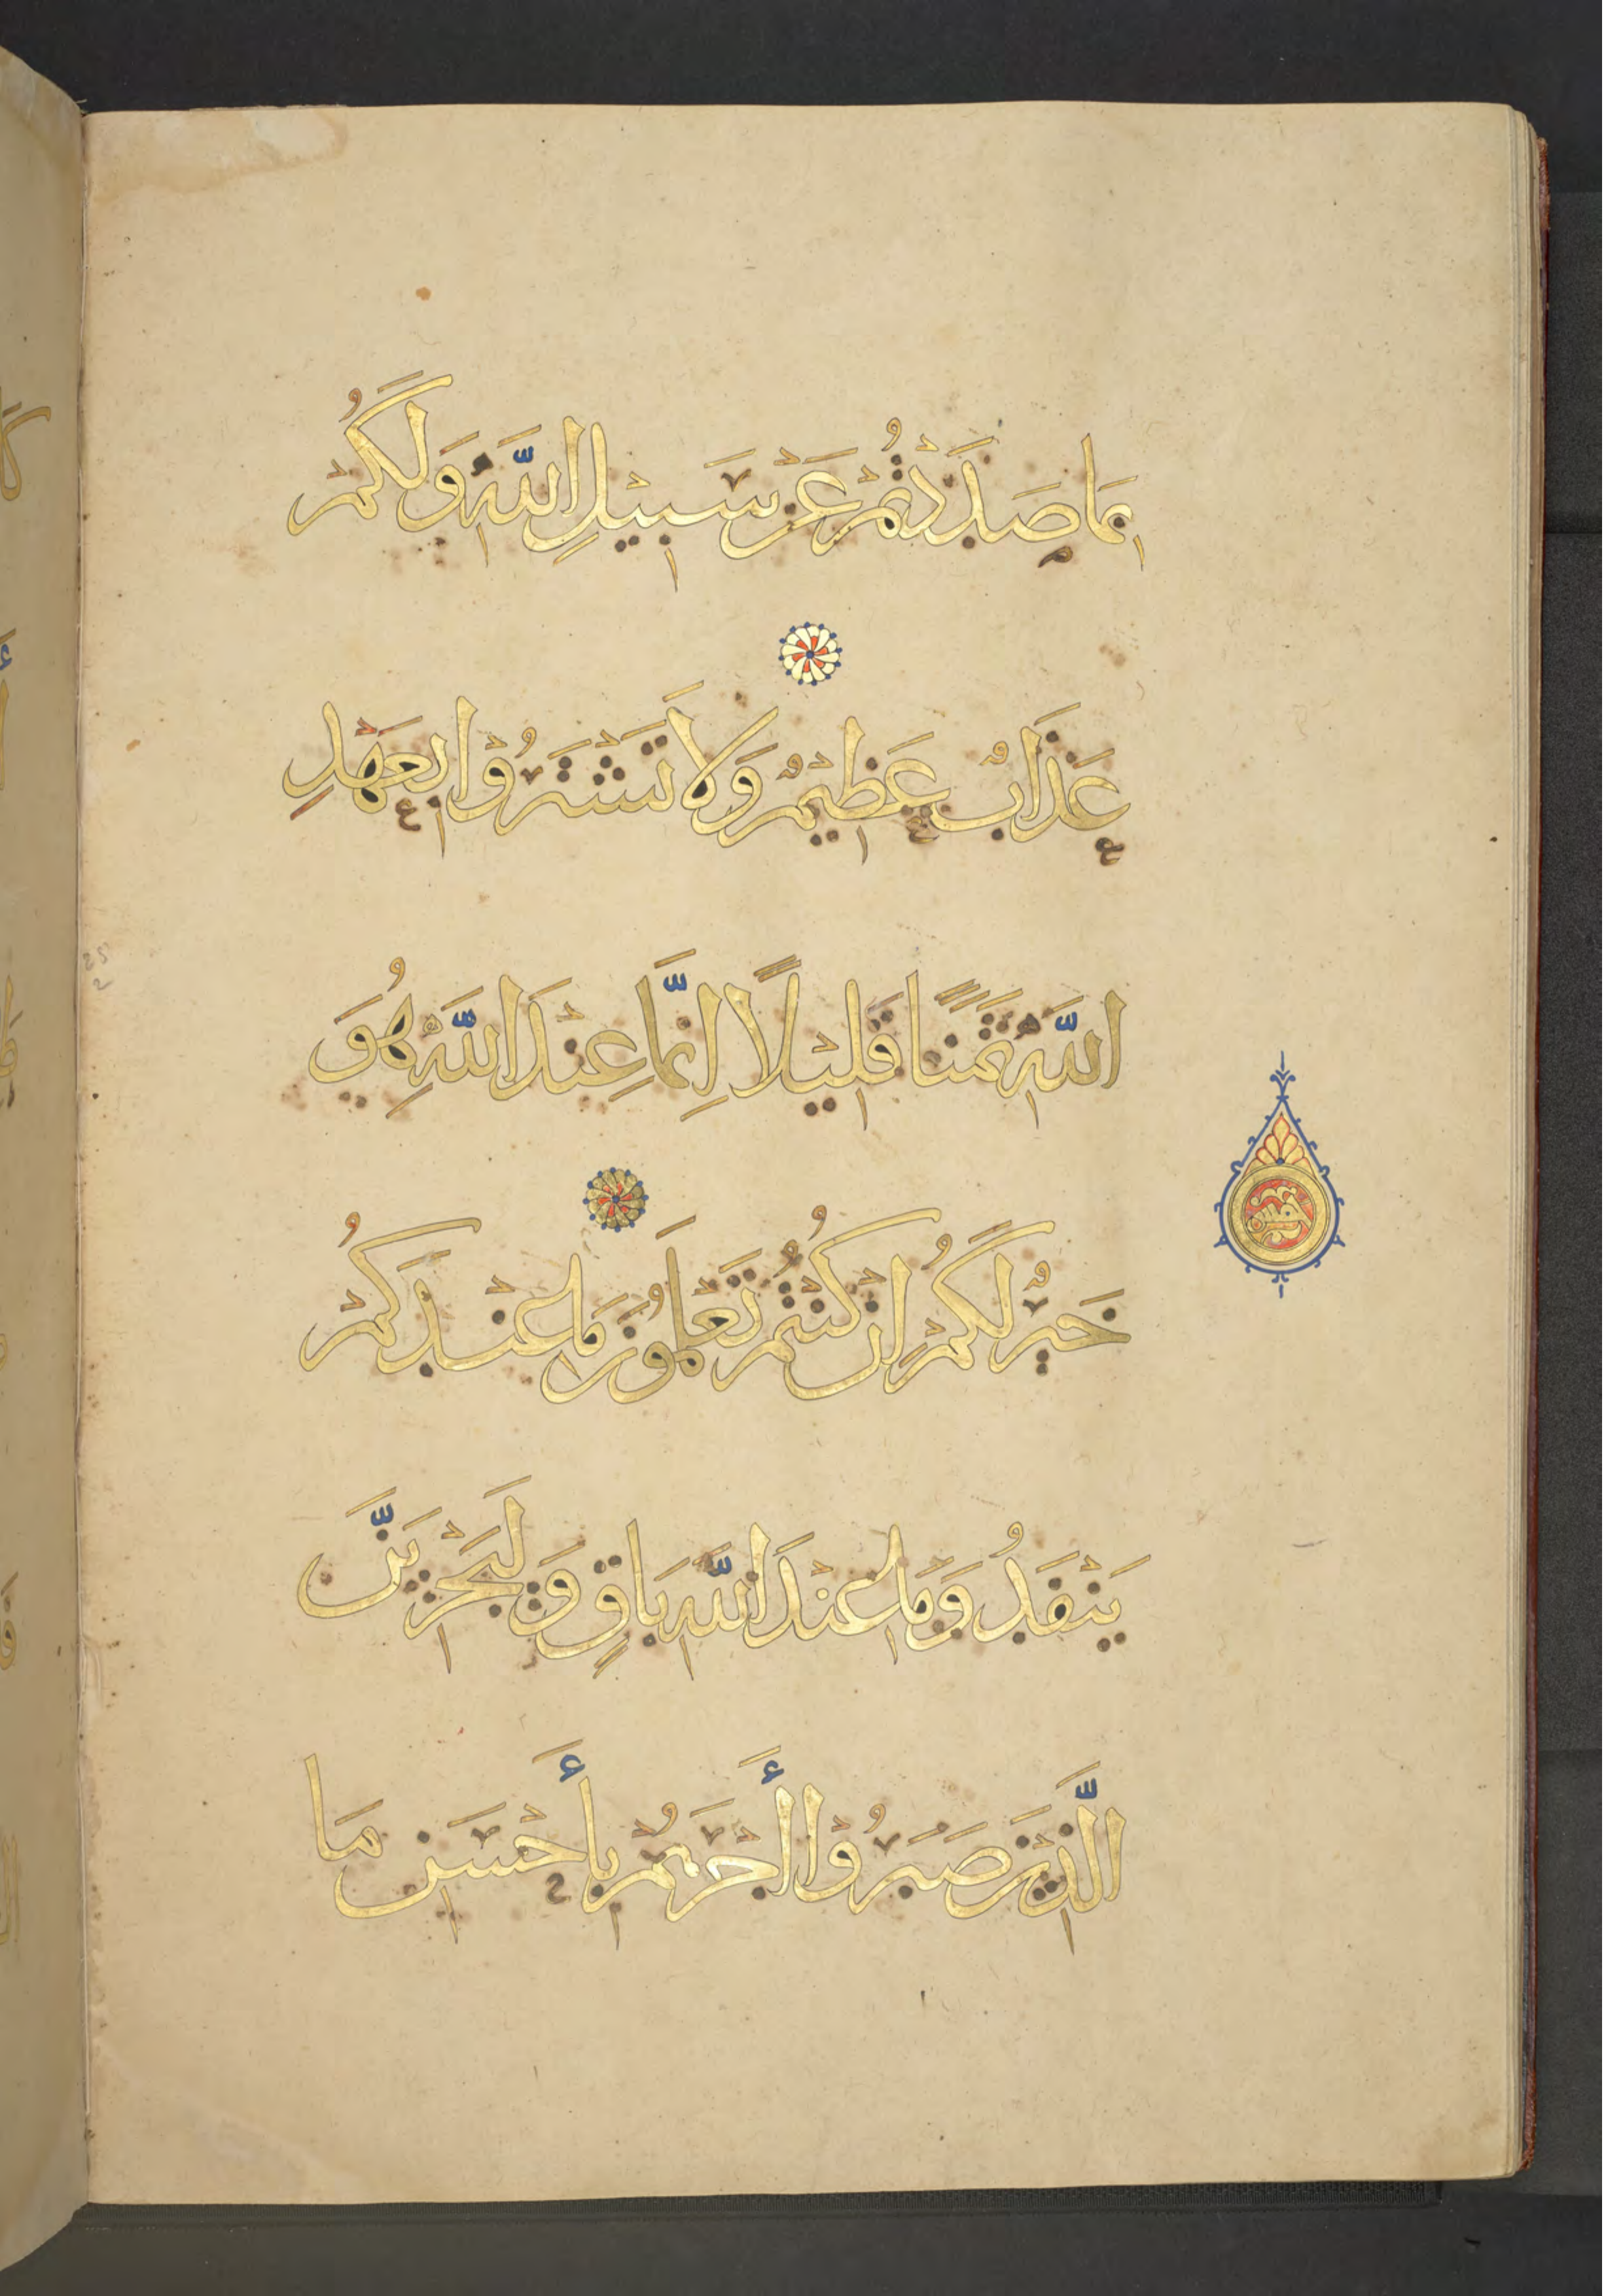 بِمَا صَدَدْتُمْ عَنْ سَبِيْلِ اللّٰهِ وَلَكُمْ
عَذَابٌ عَظِيْمٌ وَلَا تَشْتَرُوْا بِعَهْدِ
اللّٰهِ ثَمَنًا قَلِيْلًا اِنَّمَا عِنْدَ اللّٰهِ هُوَ
خَيْرٌ لَكُمْ اِنْ كُنْتُمْ تَعْلَمُوْنَ مَا عِنْدَكُمْ
يَنْفَدُ وَمَا عِنْدَ اللّٰهِ بَاقٍ وَلَيَجْزِيَنَّ
الَّذِيْنَ صَبَرُوْا أَجْرَهُمْ بِأَحْسَنِ مَا